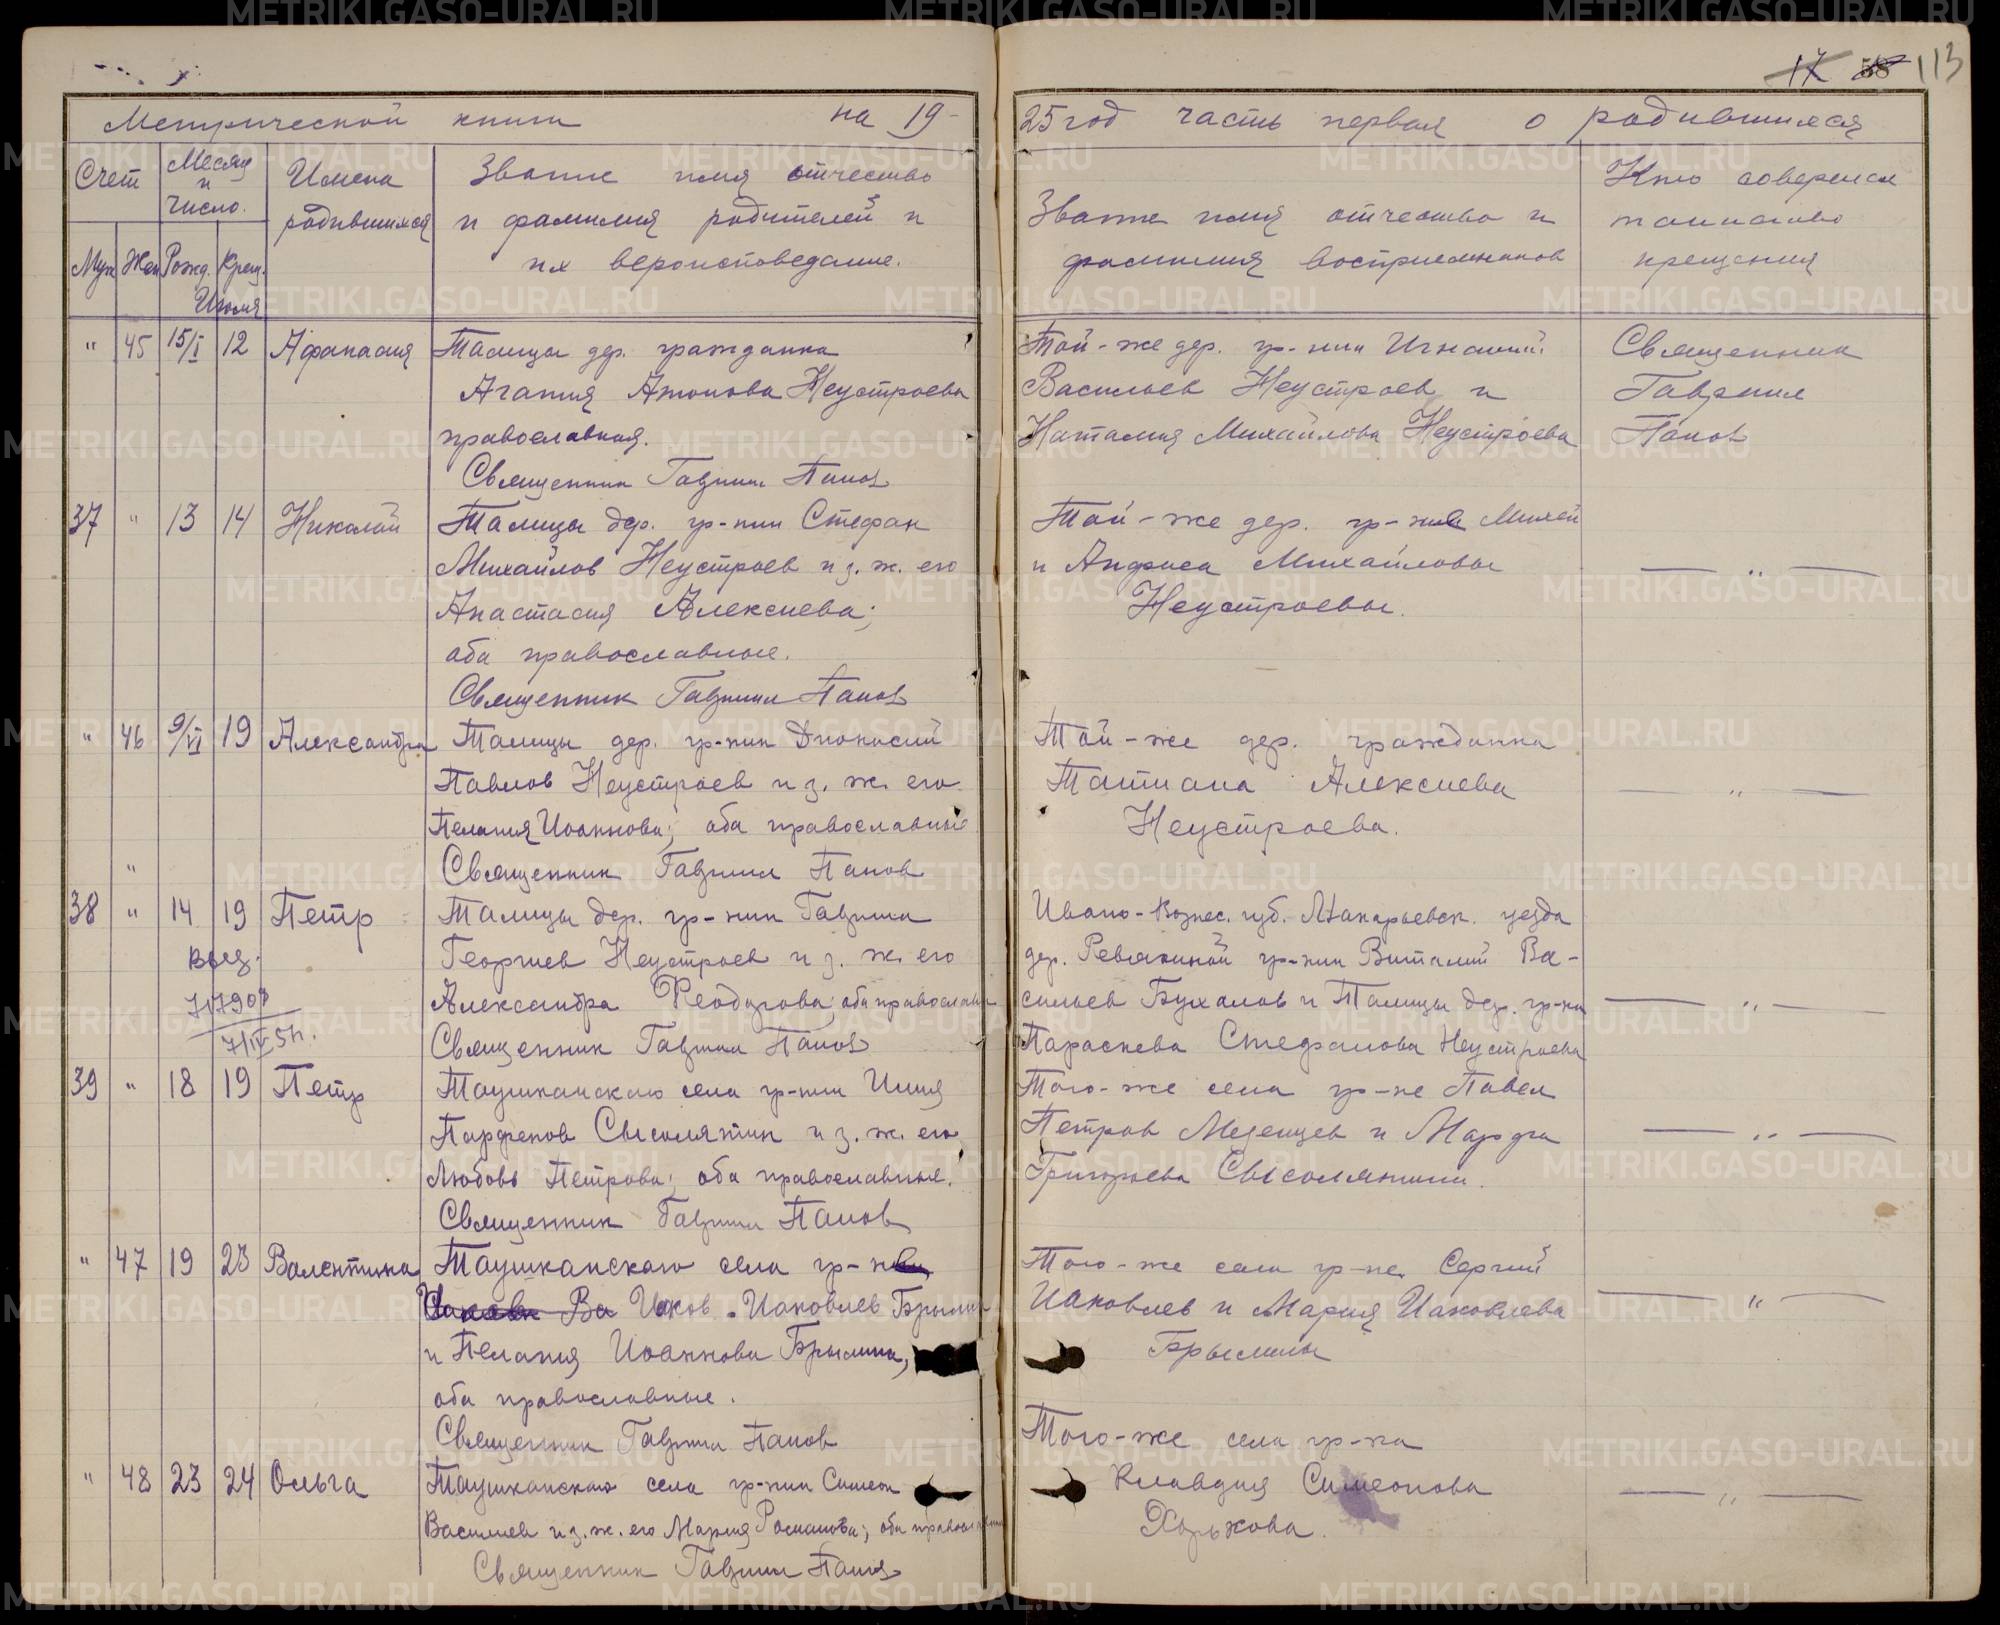 17 58 113
Метрической книги на 19-
25 год часть первая о родившихся
Счет
Месяц и число.
Имена родившихся
Звание имя отчество
и фамилия родителей и
их вероисповедание.
Звание имя отчество и
фамилия восприемников
Кто совершал
таинство
крещения
Муж Жен Рожд. Крещ.
Июля
" 45 15/I 12 Афанасия Талицы дер. гражданка
Агапия Никонова Неустроева
православная.
Священник Гавриил Попов
Той-же дер. гр-нин Игнатий
Васильев Неустроев и
Наталия Михайлова Неустроева
Священник
Гавриил
Попов
37 " 13 14 Николай Талицы дер. гр-нин Стефан
Михайлов Неустроев и з. ж. его
Анастасия Алексиева;
оба православные.
Священник Гавриил Попов
Той-же дер. гр-не
и Михайловы
Неустроевы.
— " —
" 46 9/VI 19 Александра Талицы дер. гр-нин Дионисий
Павлов Неустроев и з. ж. его
Пелагия Иоаннова; оба православные
Священник Гавриил Попов
Той-же дер. гражданка
Татиана Алексиева
Неустроева.
— " —
"
38 " 14 19 Петр Талицы дер. гр-нин Гавриил
Георгиев Неустроев и з. ж. его
Александра Феодорова; оба православн
Священник Гавриил Попов
7/IV 5
Ивано-Вознес. губ. Макарьевск. уезда
дер. Ревякиной гр-нин Виталий Ва-
сильев Бухалов и Талицы дер. гр-ка
Параскева Стефанова Неустроева
— " —
39 " 18 19 Петр Таушканского села гр-нин Илия
Парфенов Сысолятин и з. ж. его
Любовь Петрова; оба православные.
Священник Гавриил Попов
Того-же села гр-не Павел
Петров Мезенцев и Марфа
Григорьева Сысолятины.
— " —
" 47 19 23 Валентина Таушканского села гр-не
Ва Иаков Иаковлев Брылин
и Пелагия Иоаннова Брылина,
оба православные.
Священник Гавриил Попов
Того-же села гр-не Сергий
Иаковлев и Мария Иаковлева
Брылины
— " —
" 48 23 24 Ольга Таушканского села гр-нин Симеон
Васильев и з. ж. его Мария Романова; оба православные
Священник Гавриил Попов
Того-же села гр-ка
Клавдия Симеонова
Харькова.
— " —
METRIKI.GASO-URAL.RU